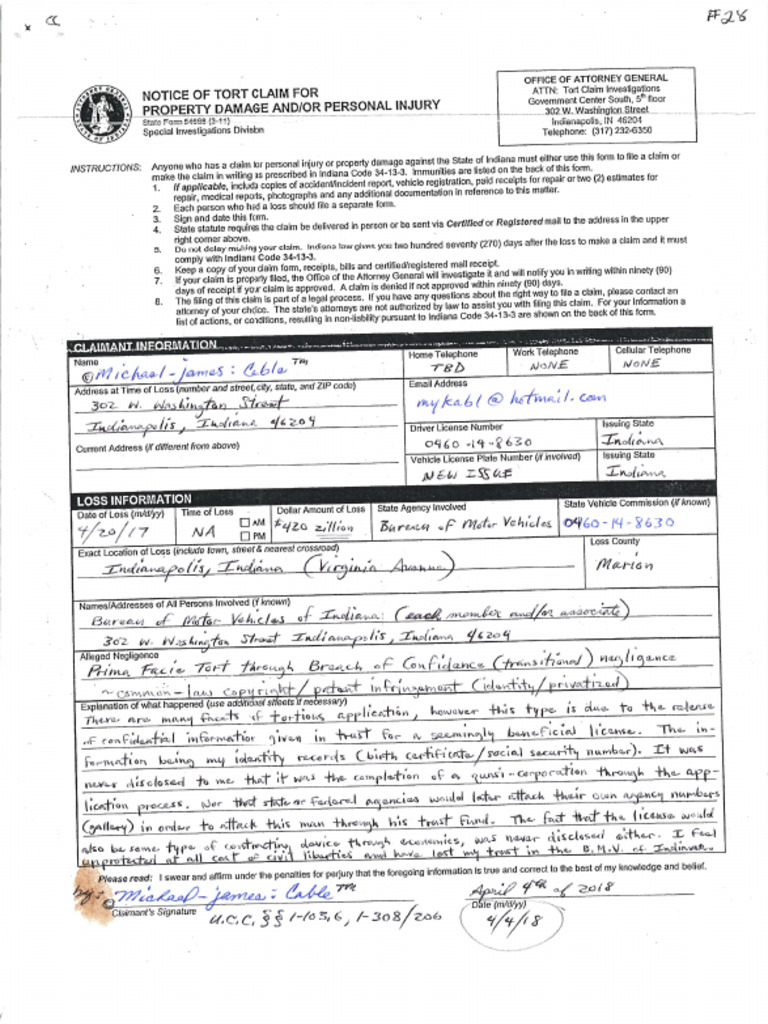 CC
FF28
NOTICE OF TORT CLAIM FOR
PROPERTY DAMAGE AND/OR PERSONAL INJURY
State Form 54668 (3-11)
Special Investigations Division
OFFICE OF ATTORNEY GENERAL
ATTN: Tort Claim Investigations
Government Center South, 5th floor
302 W. Washington Street
Indianapolis, IN 46204
Telephone: (317) 232-6350
INSTRUCTIONS: Anyone who has a claim for personal injury or property damage against the State of Indiana must either use this form to file a claim or
make the claim in writing as prescribed in Indiana Code 34-13-3. Immunities are listed on the back of this form.
1. If applicable, include copies of accident/incident report, vehicle registration, paid receipts for repair or two (2) estimates for
repair, medical reports, photographs and any additional documentation in reference to this matter.
2. Each person who had a loss should file a separate form.
3. Sign and date this form.
4. State statute requires the claim be delivered in person or be sent via Certified or Registered mail to the address in the upper
right corner above.
5. Do not delay making your claim. Indiana law gives you two hundred seventy (270) days after the loss to make a claim and it must
comply with Indiana Code 34-13-3.
6. Keep a copy of your claim form, receipts, bills and certified/registered mail receipt.
7. If your claim is properly filed, the Office of the Attorney General will investigate it and will notify you in writing within ninety (90)
days of receipt if your claim is approved. A claim is denied if not approved within ninety (90) days.
8. The filing of this claim is part of a legal process. If you have any questions about the right way to file a claim, please contact an
attorney of your choice. The state's attorneys are not authorized by law to assist you with filing this claim. For your information a
list of actions, or conditions, resulting in non-liability pursuant to Indiana Code 34-13-3 are shown on the back of this form.
CLAIMANT INFORMATION
Name
©Michael-james: Cable™
Home Telephone
TBD
Work Telephone
NONE
Cellular Telephone
NONE
Address at Time of Loss (number and street, city, state, and ZIP code)
302 W. Washington Street
Indianapolis, Indiana 46204
Email Address
mykabl@hotmail.com
Driver License Number
0460-14-8630
Issuing State
Indiana
Current Address (if different from above)
Vehicle License Plate Number (if involved)
NEW ISSUE
Issuing State
Indiana
LOSS INFORMATION
Date of Loss (m/d/yy)
4/20/17
Time of Loss
NA
AM
PM
Dollar Amount of Loss
$420 zillion
State Agency Involved
Bureau of Motor Vehicles
State Vehicle Commission (if known)
0460-14-8630
Exact Location of Loss (include town, street & nearest crossroad)
Indianapolis, Indiana (Virginia Avenue)
Loss County
Marion
Names/Addresses of All Persons Involved (if known)
Bureau of Motor Vehicles of Indiana: (each member and/or associate)
302 W. Washington Street Indianapolis, Indiana 46204
Alleged Negligence
Prima Facie Tort through Breach of Confidence (transitional) negligence
~common-law copyright/patent infringement (identity/privatized)
Explanation of what happened (use additional sheets if necessary)
There are many facets of tortious application, however this type is due to the release
of confidential information given in trust for a seemingly beneficial license. The in-
formation being my identity records (birth certificate/social security number). It was
never disclosed to me that it was the completion of a quasi-corporation through the app-
lication process. Nor that state or federal agencies would later attach their own agency numbers
(gallery) in order to attack this man through his trust fund. The fact that the license would
also be some type of contracting device through economics, was never disclosed either. I feel
unprotected at all cost of civil liberties and have lost my trust in the B.M.V. of Indiana.
Please read: I swear and affirm under the penalties for perjury that the foregoing information is true and correct to the best of my knowledge and belief.
by: ©Michael-james: Cable™
April 4th of 2018
Claimant's Signature
U.C.C. §§ 1-103,6, 1-308/206
Date (m/d/yy)
4/4/18